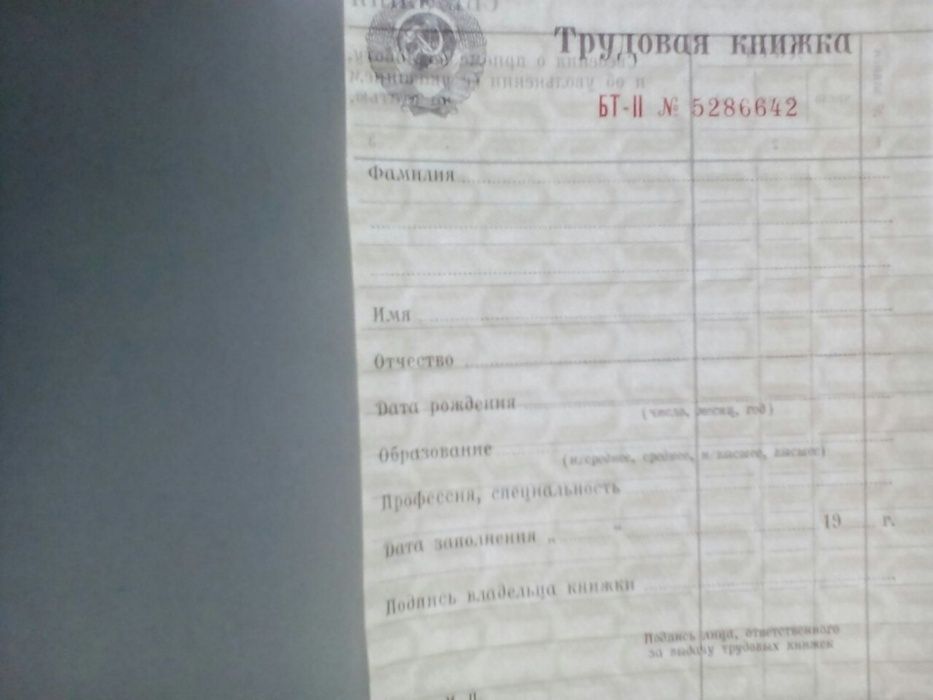 Трудовая книжка
БТ-II № 5286642
Фамилия
Имя
Отчество
Дата рождения
(число, месяц, год)
Образование
(н/среднее, среднее, н/высшее, высшее)
Профессия, специальность
Дата заполнения „ “ 19 г.
Подпись владельца книжки
Подпись лица, ответственного
за выдачу трудовых книжек